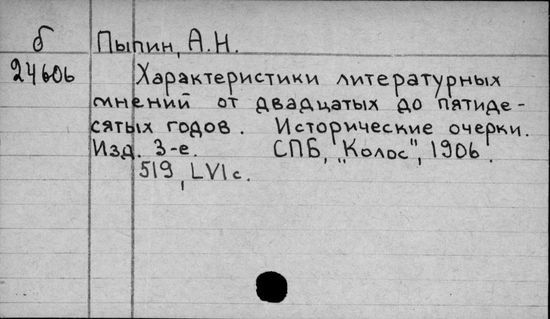 б Пыпин, А.Н.
24606 Характеристики литературных
мнений от двадцатых до пятиде-
сятых годов. Исторические очерки.
Изд. 3-е. СПБ, "Колос", 1906.
519, LVI с.